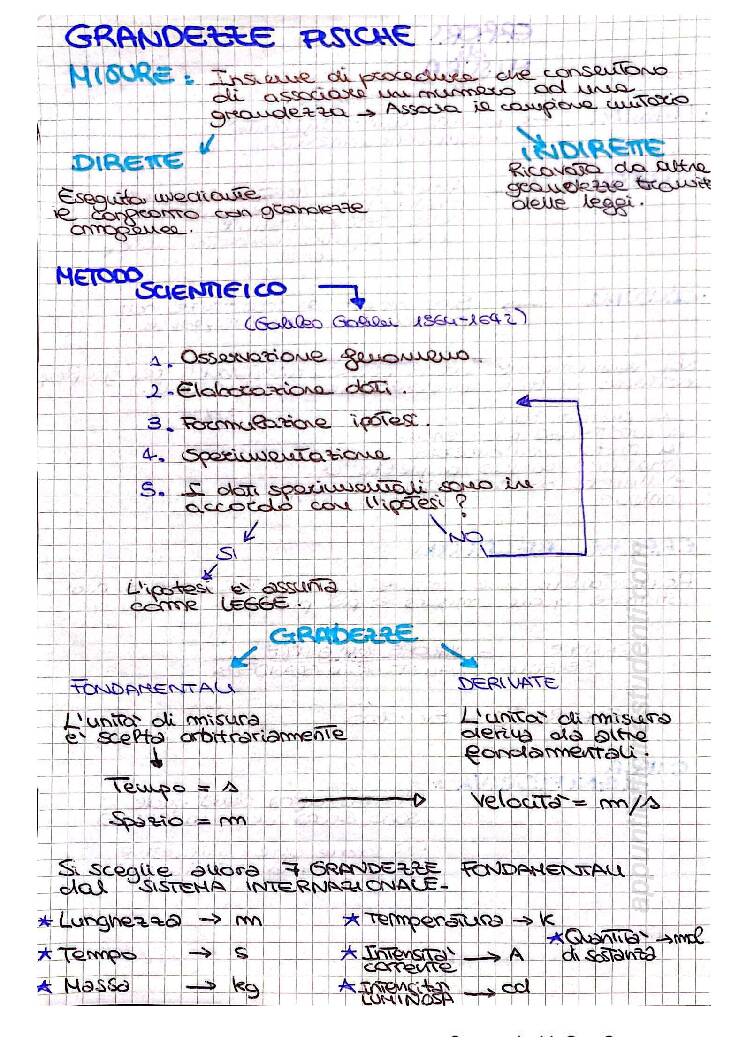 GRANDEZZE FISICHE
MISURE: Insieme di procedure che consentono
di associare un numero ad una
grandezza → Associa il campione unitario
DIRETTE
Eseguita mediante
il confronto con grandezze
omogenee.
INDIRETTE
Ricavata da altre
grandezze tramit
delle leggi.
METODO
SCIENTIFICO
(Galileo Galilei 1564-1642)
1. Osservazione fenomeno.
2. Elaborazione dati.
3. Formulazione ipotesi.
4. Sperimentazione
5. I dati sperimentali sono in
accordo con l'ipotesi?
SI
NO
L'ipotesi è assunta
come LEGGE.
GRADEZZE
FONDAMENTALI
L'unità di misura
è scelta arbitrariamente
Tempo = s
Spazio = m
DERIVATE
L'unità di misura
deriva da altre
fondamentali.
Velocità = m/s
Si sceglie allora 7 GRANDEZZE FONDAMENTALI
dal SISTEMA INTERNAZIONALE-
★ Lunghezza → m
★ Tempo → s
★ Massa → kg
★ Temperatura → K
★ Intensità corrente → A
★ Intensità LUMINOSA → cd
★ Quantità di sostanza → mol